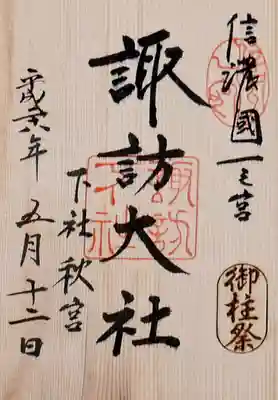 信濃國一之宮
御柱祭
諏訪大社
下社秋宮
平成廿八年 五月十二日